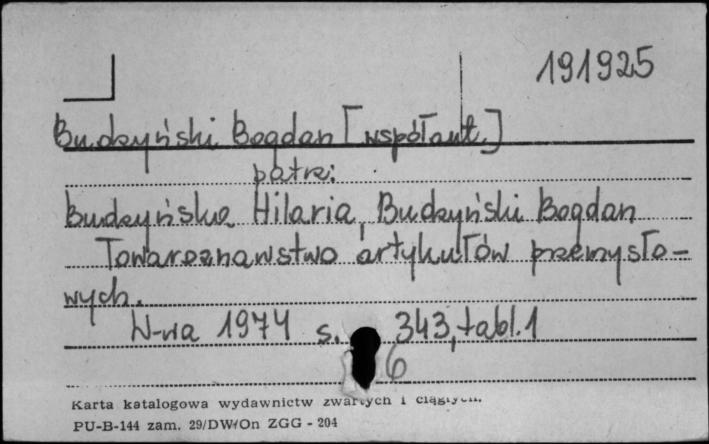 191925
Budzyński Bogdan [współaut.]
patrz:
Budzyńska Hilaria, Budzyński Bogdan
Towaroznawstwo artykułów przemysło-
wych.
W-wa 1974 s. 343, tabl. 1
6
Karta katalogowa wydawnictw zwartych i ciągłych.
PU-B-144 zam. 29/DW/On ZGG - 204